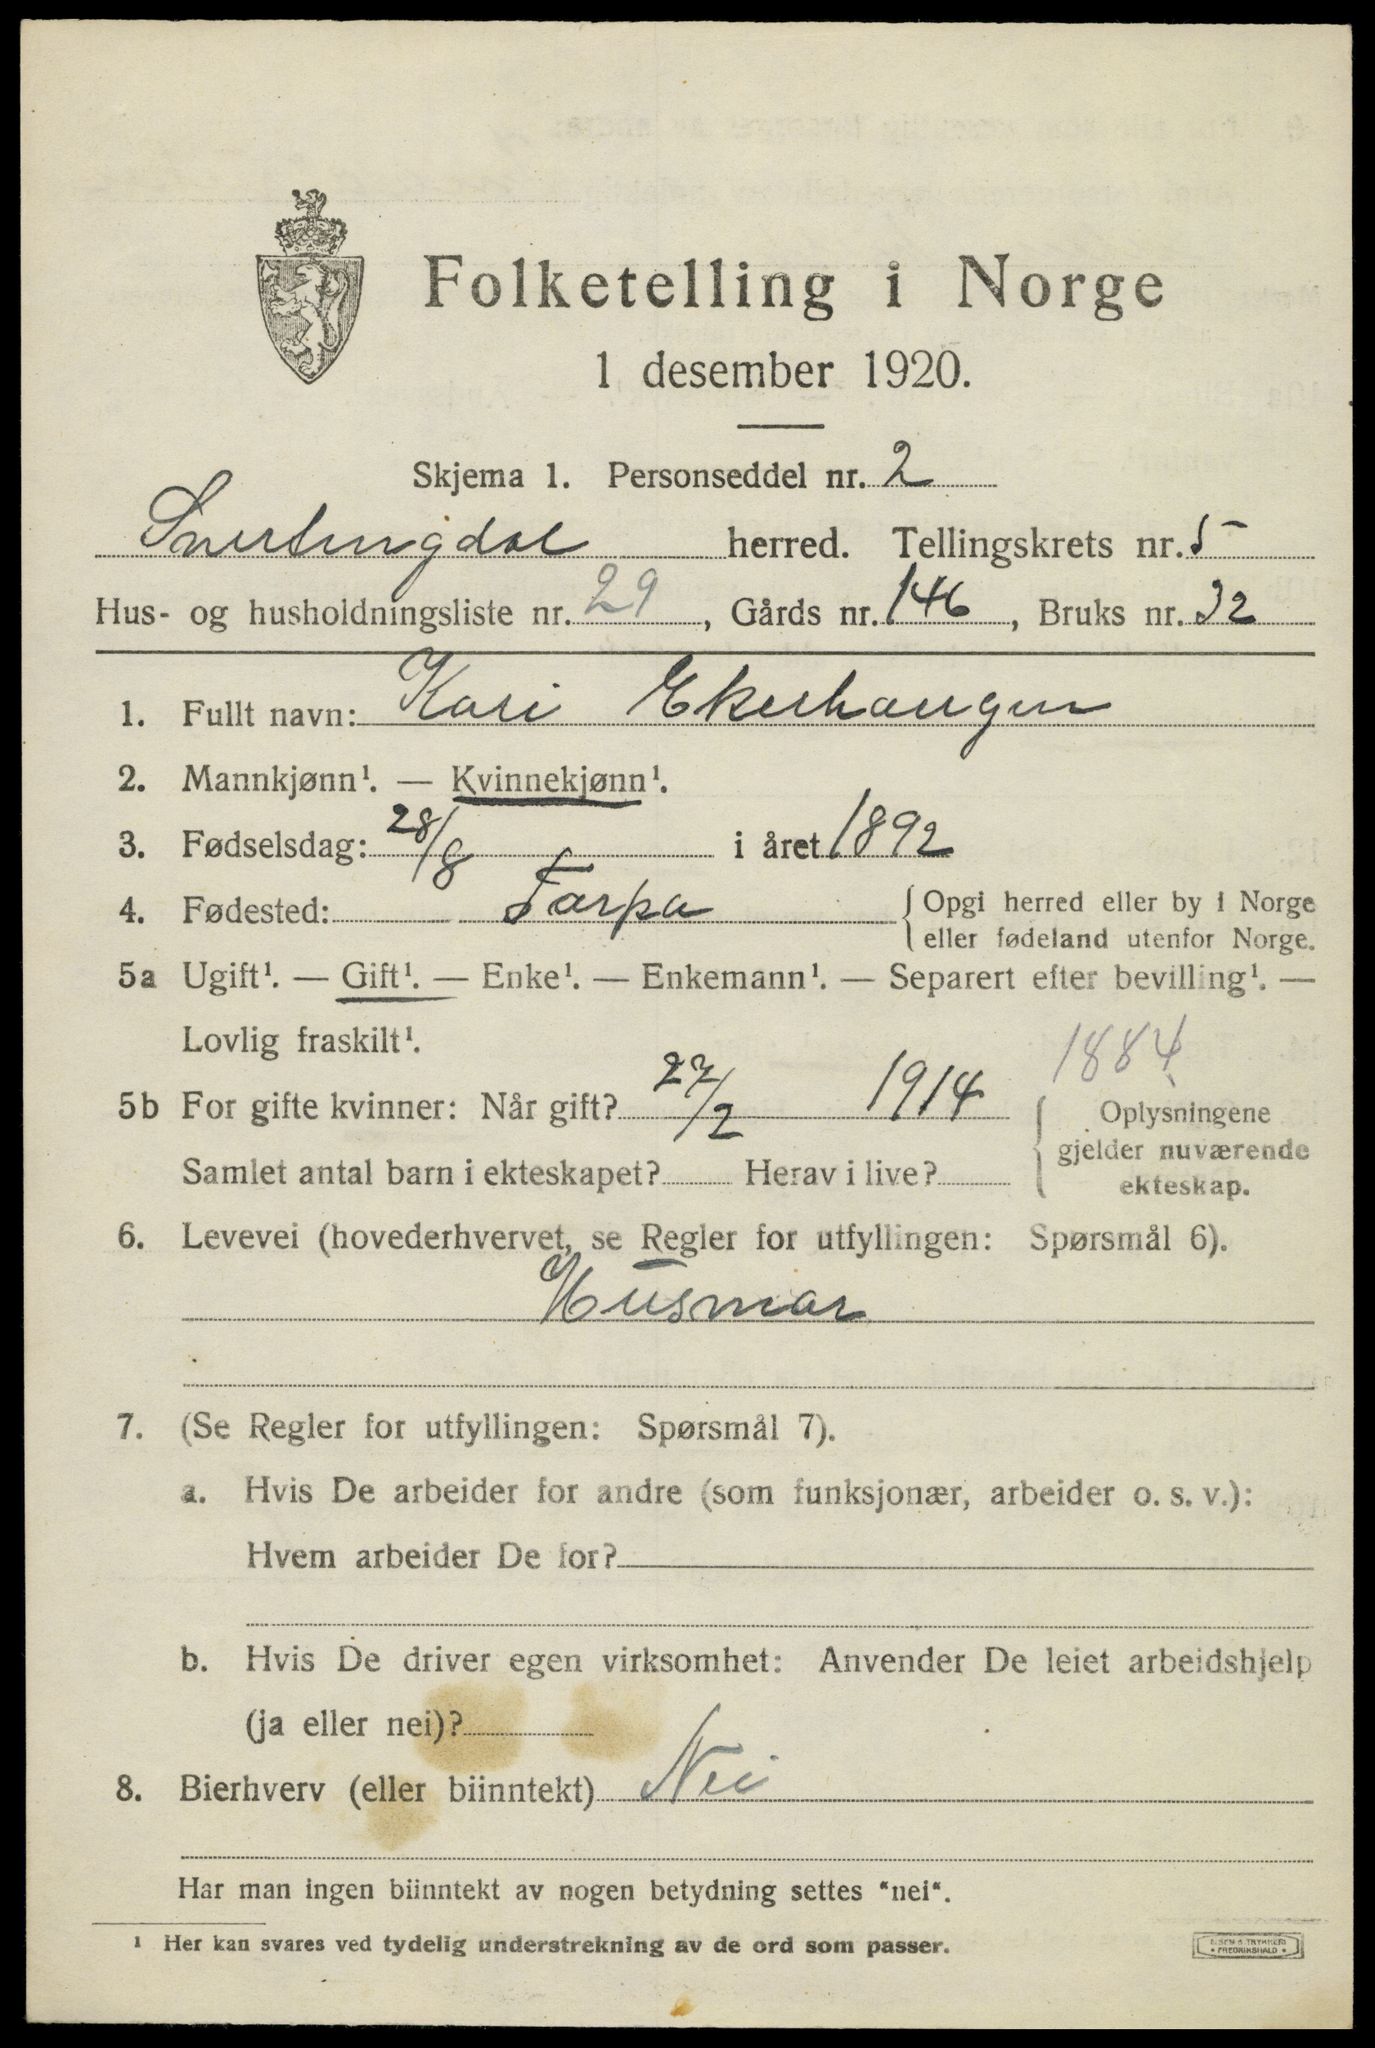 Folketelling i Norge
1 desember 1920.
Skjema 1. Personseddel nr. 2
Snertingdal herred. Tellingskrets nr. 5
Hus- og husholdningsliste nr. 29, Gårds nr. 146, Bruks nr. 32
1. Fullt navn: Kari Ekerhaugen
2. Mannkjønn¹. — Kvinnekjønn¹.
3. Fødselsdag: 28/8 i året 1892
4. Fødested: Torpa {Opgi herred eller by i Norge
eller fødeland utenfor Norge.
5a Ugift¹. — Gift¹. — Enke¹. — Enkemann¹. — Separert efter bevilling¹. —
Lovlig fraskilt¹.
1884
5b For gifte kvinner: Når gift? 27/2 1914 { Oplysningene
gjelder nuværende
Samlet antal barn i ekteskapet? Herav i live?
ekteskap.
6. Levevei (hovederhvervet, se Regler for utfyllingen: Spørsmål 6).
Husmor
7. (Se Regler for utfyllingen: Spørsmål 7).
a. Hvis De arbeider for andre (som funksjonær, arbeider o. s. v.):
Hvem arbeider De for?
b. Hvis De driver egen virksomhet: Anvender De leiet arbeidshjelp
(ja eller nei)?
8. Bierhverv (eller biinntekt) Nei
Har man ingen biinntekt av nogen betydning settes "nei".
¹ Her kan svares ved tydelig understrekning av de ord som passer.
FREDRIKSHALD